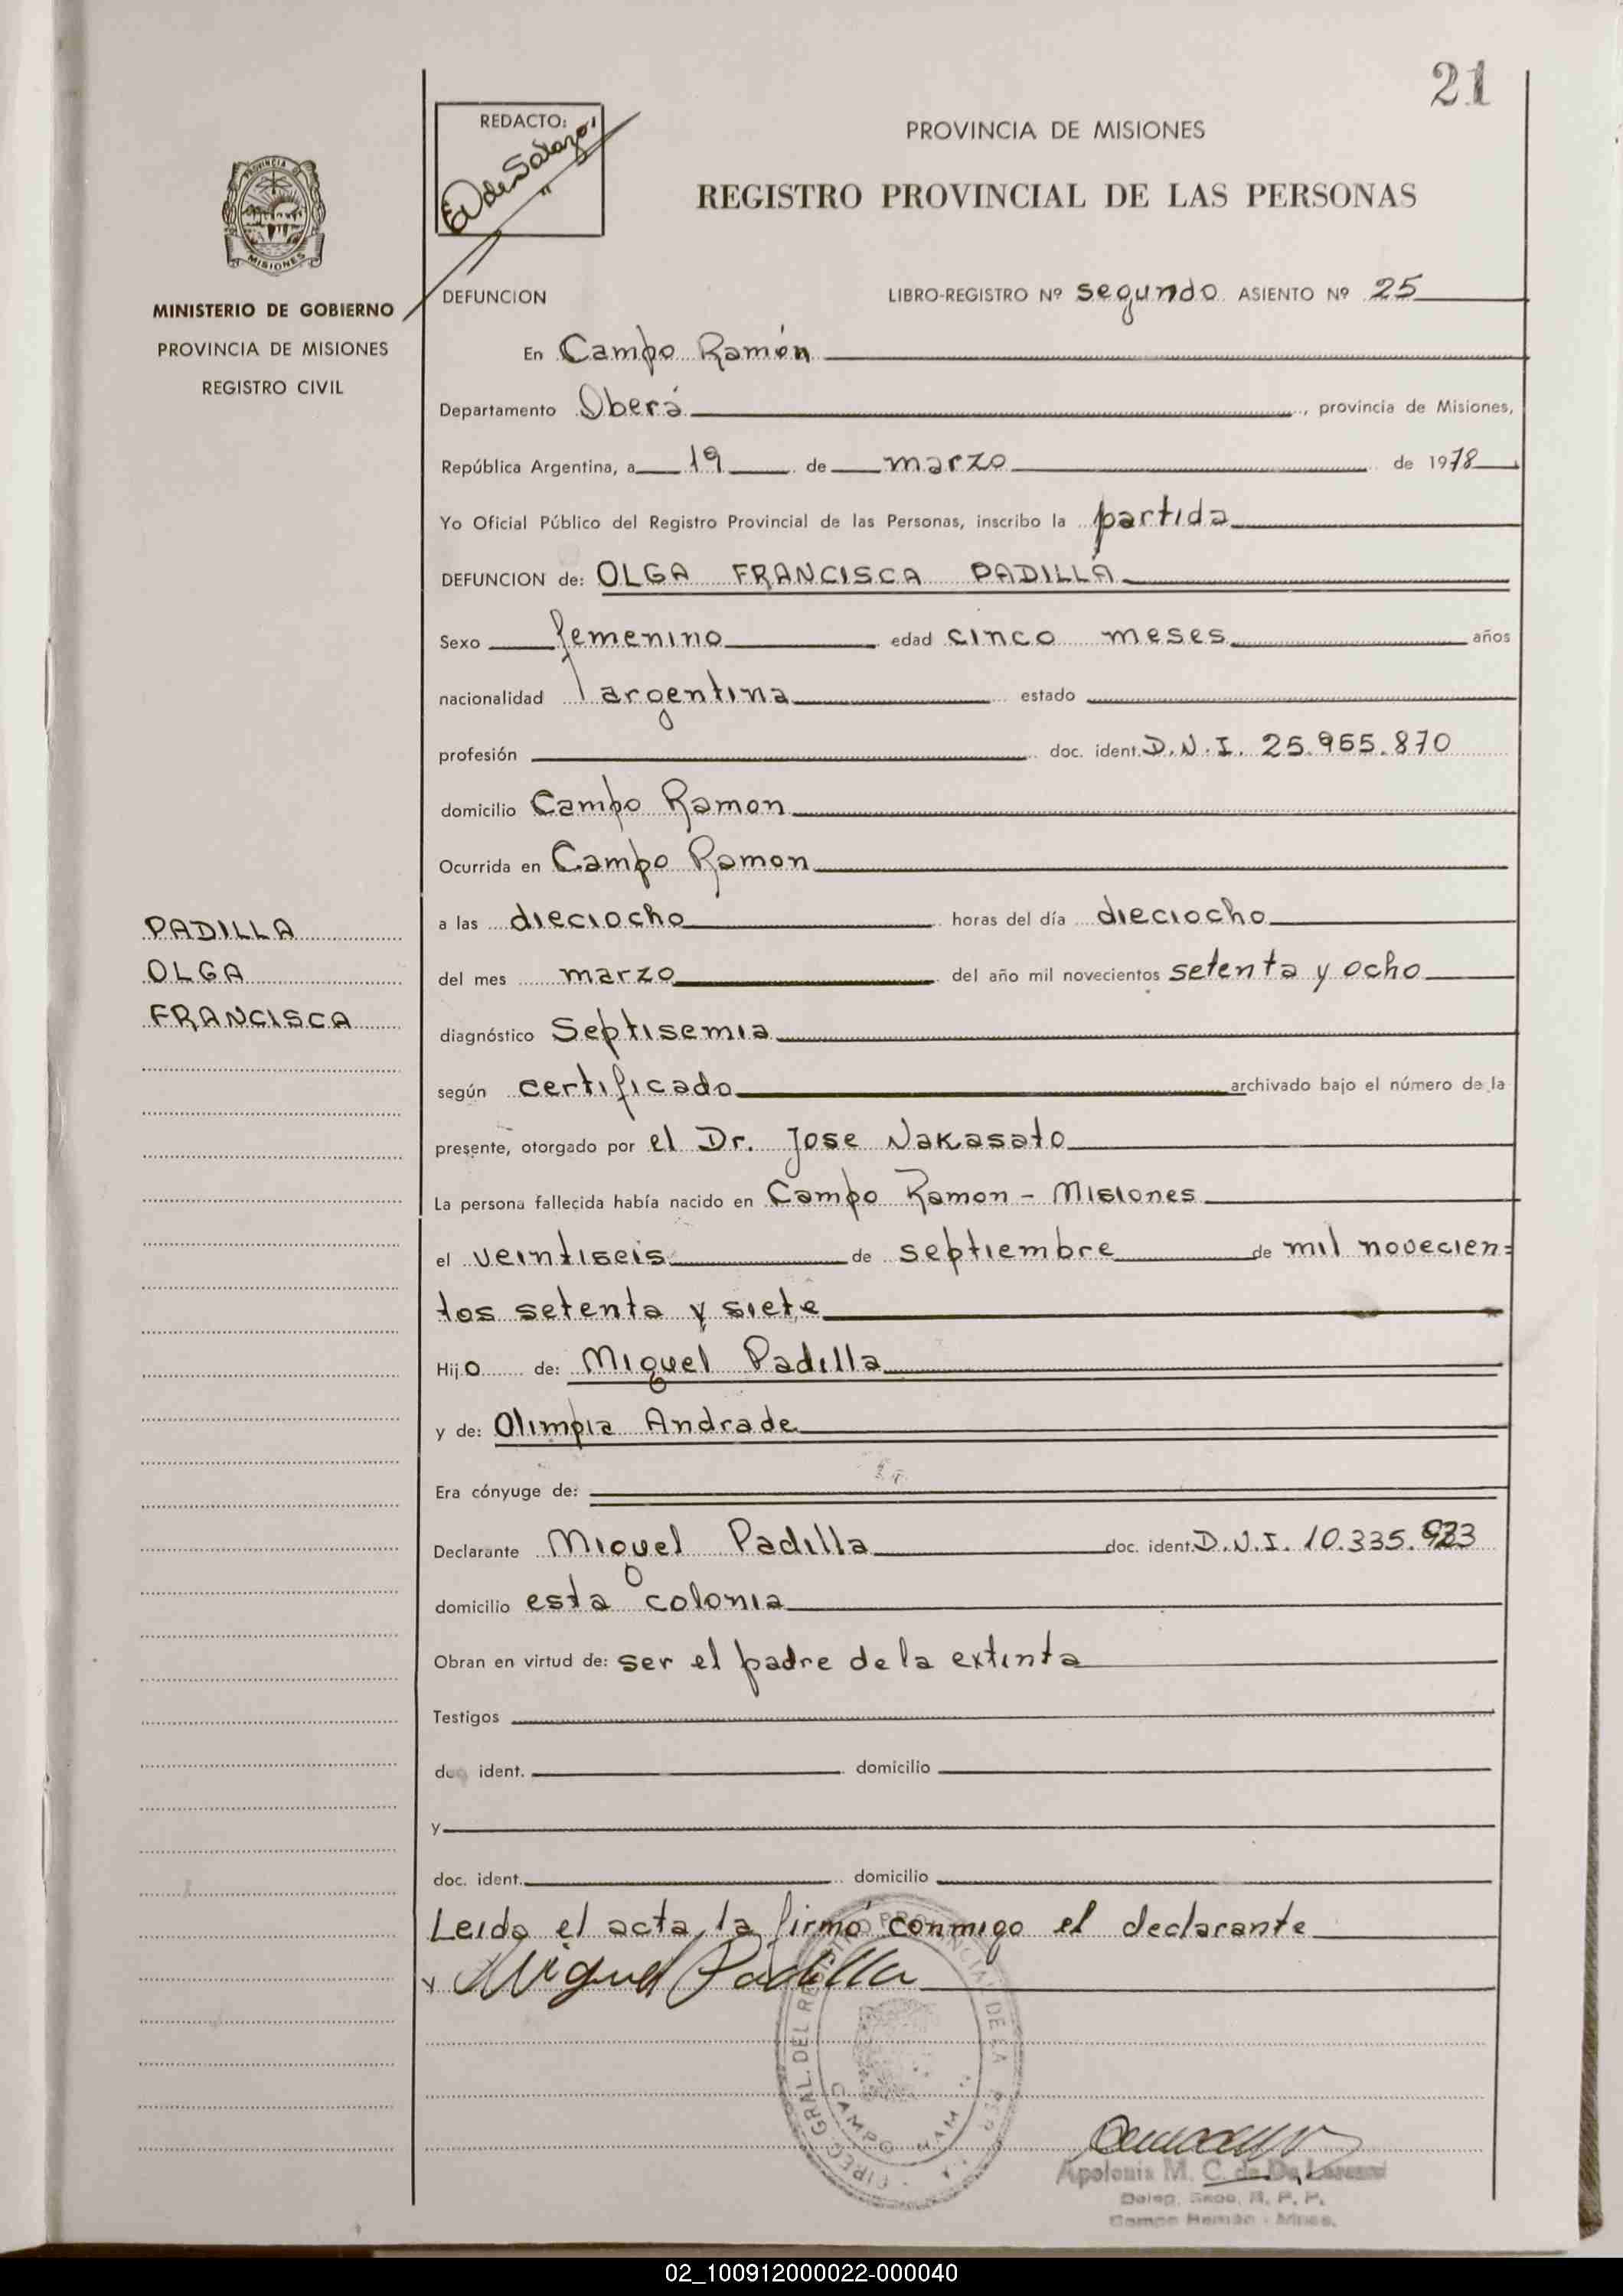 21
REDACTO:
PROVINCIA DE MISIONES
REGISTRO PROVINCIAL DE LAS PERSONAS
PROVINCIA
MISIONES
MINISTERIO DE GOBIERNO
PROVINCIA DE MISIONES
REGISTRO CIVIL
DEFUNCION LIBRO-REGISTRO Nº segundo ASIENTO Nº 25
En Campo Ramón
Departamento Oberá, provincia de Misiones,
República Argentina, a 19 de marzo de 1978
Yo Oficial Público del Registro Provincial de las Personas, inscribo la partida
DEFUNCION de: OLGA FRANCISCA PADILLA
Sexo femenino edad cinco meses años
nacionalidad argentina estado
profesión doc. ident. D.N.I. 25.955.870
domicilio Campo Ramon
Ocurrida en Campo Ramon
PADILLA
OLGA
FRANCISCA
a las dieciocho horas del día dieciocho
del mes marzo del año mil novecientos setenta y ocho
diagnóstico Septisemia
según certificado archivado bajo el número de la
presente, otorgado por el Dr. Jose Nakasato
La persona fallecida había nacido en Campo Ramon - Misiones
el veintiseis de septiembre de mil novecien=
tos setenta y siete
Hijo de: Miguel Padilla
y de: Olimpia Andrade
Era cónyuge de:
Declarante Miguel Padilla doc. ident. D.N.I. 10.335.
domicilio esta colonia
Obran en virtud de: ser el padre de la extinta
Testigos
doc. ident. domicilio
y
doc. ident. domicilio
Leida el acta, la firmó conmigo el declarante
y Miguel Padilla
DIREC. GRAL. DEL REGISTRO PROVINCIAL DE LA PER
CAMPO RAM
Apolonia M. C. de De
Deleg. R. P. P.
Campo Ramón - Mnes.
02_100912000022-000040